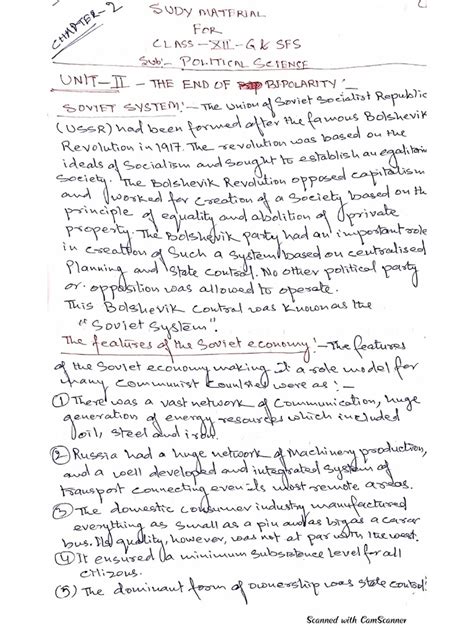 CHAPTER-2
SUDY MATERIAL
FOR
CLASS-XII-G & SFS
Sub:- POLITICAL SCIENCE
UNIT-II - THE END OF BIPOLARITY:-
SOVIET SYSTEM:- The Union of Soviet Socialist Republic
(USSR) had been formed after the famous Bolshevik
Revolution in 1917. The revolution was based on the
ideals of Socialism and sought to establish an egalitarian
Society. The Bolshevik Revolution opposed capitalism
and worked for creation of a Society based on the
principle of equality and abolition of private
property. The Bolshevik party had an important role
in creation of Such a system based on centralised
Planning and State Control. No other political party
or opposition was allowed to operate.
This Bolshevik Control was known as the
"Soviet System".
The features of the Soviet economy:- The features
of the Soviet economy making it a role model for
many Communist Countries were as:-
① There was a vast network of Communication, huge
generation of energy resources which included
oil, steel and iron.
② Russia had a huge network of Machinery production,
and a well developed and integrated system of
transport connecting even its most remote areas.
③ The domestic consumer industry manufactured
everything as small as a pin and as big as a car or
bus. Its quality, however, was not at par with the west.
④ It ensured a minimum subsistence level for all
citizens.
⑤ The dominant form of ownership was state control.
Scanned with CamScanner